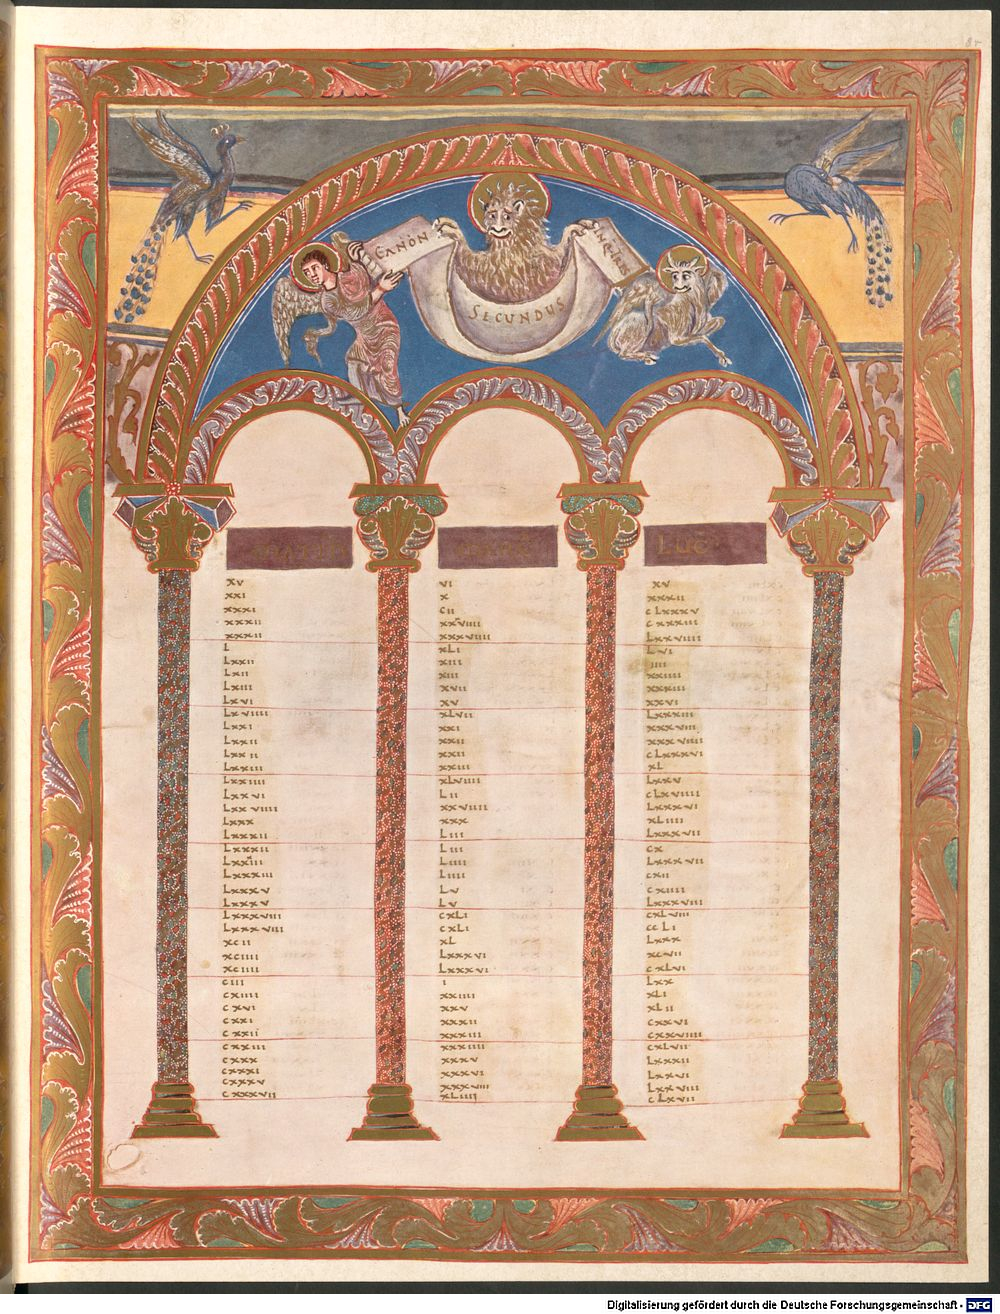 8r
CANON
SECUNDUS
IN QUO
LUC̄
XV VI XV
XXI X XXXII
XXXI CII CLXXXV
XXXII XXXVIIII CXXXIII
XXXII XXXVIIII LXXVIIII
L XLI LVI
LXXII XIII IIII
LXII XIII XXIIII
LXIII XVII XXXIII
LXVI XV XXVI
LXVIIII XLVII LXXXIII
LXXI XXI XXXVIII
LXXII XXII XXXVIIII
LXXII XXII CLXXXVI
LXXIII XXIII XL
LXXIIII XLVIIII LXXV
LXXVI LII CLVIIII
LXXVIIII XXVIIII LXXXVI
LXXX XXX XLIIII
LXXXII LIII LXXXVII
LXXXII LIII CX
LXXXIII LIIII LXXXVII
LXXXIII LIIII CXII
LXXXV LV CXIIII
LXXXV LV LXXXVIII
LXXXVIII CXLI CXLVIII
LXXXVIII CXLI CCLI
XCII XL LXXX
XCIIII LXXXVI XCVII
XCIIII LXXXVI CXLVI
CIII I LXX
CXIIII XXIIII XLI
CXVI XXV XLII
CXXI XXXII CXXVI
CXXII XXXIII CXXVIIII
CXXIII XXXIIII CXLVII
CXXX XXXV LXXXII
CXXXI XXXVI LXXVI
CXXXV XXXVIII LXXVIII
CXXXVII XLIIII CLXVII
Digitalisierung gefördert durch die Deutsche Forschungsgemeinschaft - DFG